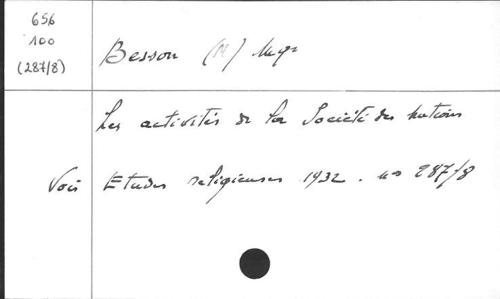 656
100
(287/8)
Besson (M) Mgr
Les activités de la Société des Nations
Voir Etudes religieuses 1932. no 287/8